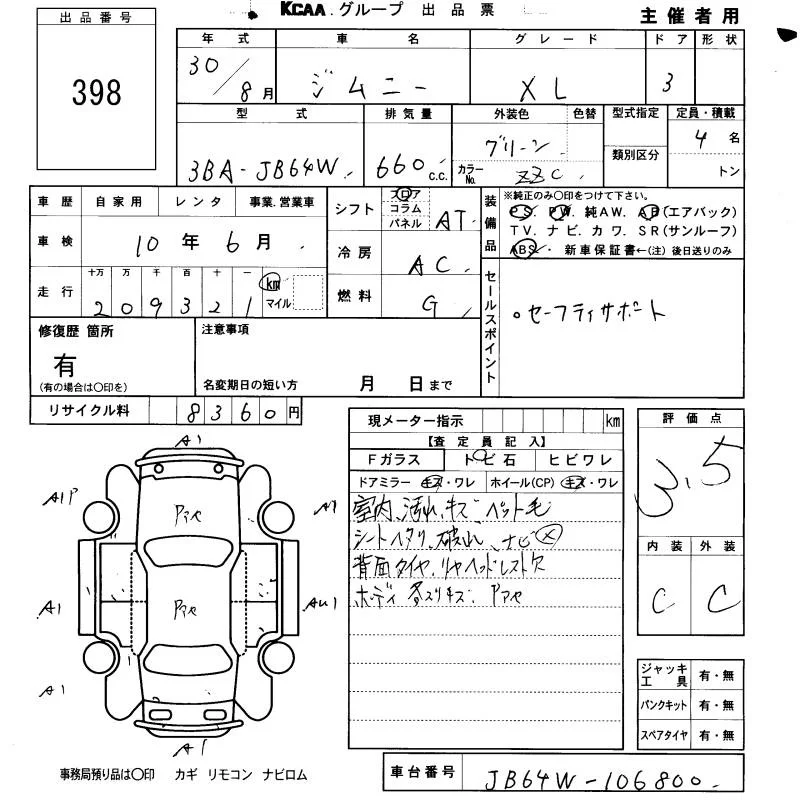 出品番号
398
KCAA.グループ 出品票
主催者用
年式 車名 グレード ドア 形状
30/8月 ジムニー XL 3
型式 排気量 外装色 色替 型式指定 定員・積載
3BA-JB64W 660c.c. グリーン 類別区分 4名
カラーNo. ZZC トン
車歴 自家用 レンタ 事業.営業車
車検 10年6月
走行 十万 万 千 百 十 一 km マイル
209321
シフト フロア コラム パネル AT
冷房 AC
燃料 G
装備品
※純正のみ〇印をつけて下さい。
PS. PW. 純AW. AB(エアバック)
TV. ナビ. カワ. SR(サンルーフ)
ABS. 新車保証書←(注)後日送りのみ
セールスポイント
・セーフティサポート
修復歴 箇所
有
(有の場合は〇印を)
注意事項
名変期日の短い方 月 日まで
リサイクル料 8360円
現メーター指示 km
【査定員記入】
Fガラス トビ石 ヒビワレ
ドアミラー キズ・ワレ ホイール(CP) キズ・ワレ
室内、汚れ、キズ ペット毛
シートヘタリ、破れ、ナビ×
背面タイヤ、リヤヘッドレスト欠
ボディ 各スリキズ、Pアセ
評価点
3.5
内装 外装
C C
A1
A1P
Pアセ
A1
A1
Pアセ
AU1
A1
A1
ジャッキ工具 有・無
パンクキット 有・無
スペアタイヤ 有・無
事務局預り品は〇印 カギ リモコン ナビロム
車台番号 JB64W-106800